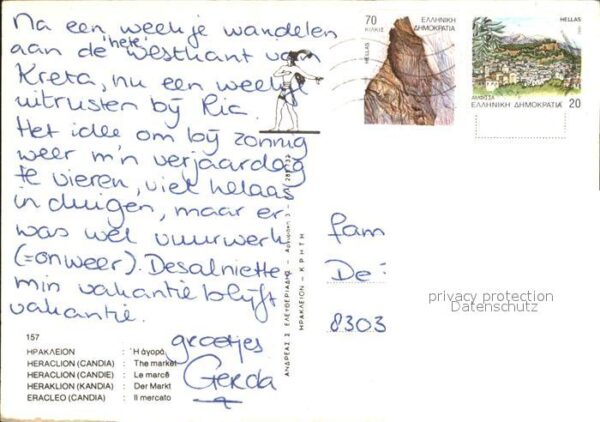 Na een weekje wandelen
aan de 'hete' westkant van
Kreta, nu een weekje
uitrusten bij Ric.
Het idee om bij zonnig
weer m'n verjaardag
te vieren, viel helaas
in duigen, maar er
was wel vuurwerk
(=onweer). Desalniette-
min vakantie blijft
vakantie.
groetjes
Gerda
70
ΚΙΛΚΙΣ
ΕΛΛΗΝΙΚΗ
ΔΗΜΟΚΡΑΤΙΑ
HELLAS
HELLAS
ΑΜΦΙΣΣΑ
ΕΛΛΗΝΙΚΗ ΔΗΜΟΚΡΑΤΙΑ
20
fam
De
8303
privacy protection
Datenschutz
ΑΝΔΡΕΑΣ Σ. ΕΛΕΥΘΕΡΙΑΔΗΣ
ΗΡΑΚΛΕΙΟΝ - ΚΡΗΤΗ
157
ΗΡΑΚΛΕΙΟΝ : Ἡ ἀγορά
HERACLION (CANDIA) : The market
HERACLION (CANDIE) : Le marcé
HERAKLION (KANDIA) : Der Markt
ERACLEO (CANDIA) : Il mercato